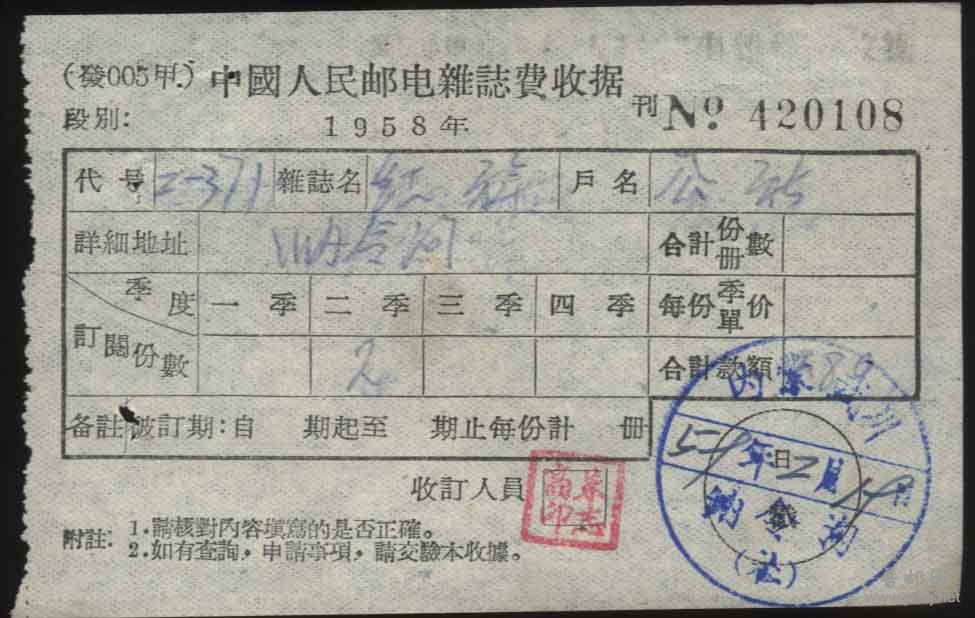 (發005甲.) 中國人民邮电雜誌費收据 刊 No. 420108
段別: 1958年
代号 2-371 雜誌名 紅旗 戶名 公社
詳細地址 納令河 合計份冊數
季度 一季 二季 三季 四季 每份季單价
訂閱份數 2 合計款額
备註 被訂期:自 期起至 期止每份計 冊
收訂人員
附註: 1.請核對內容填寫的是否正確。
2.如有查詢,申請事項,請交驗本收據。
59年2月18日
(社)